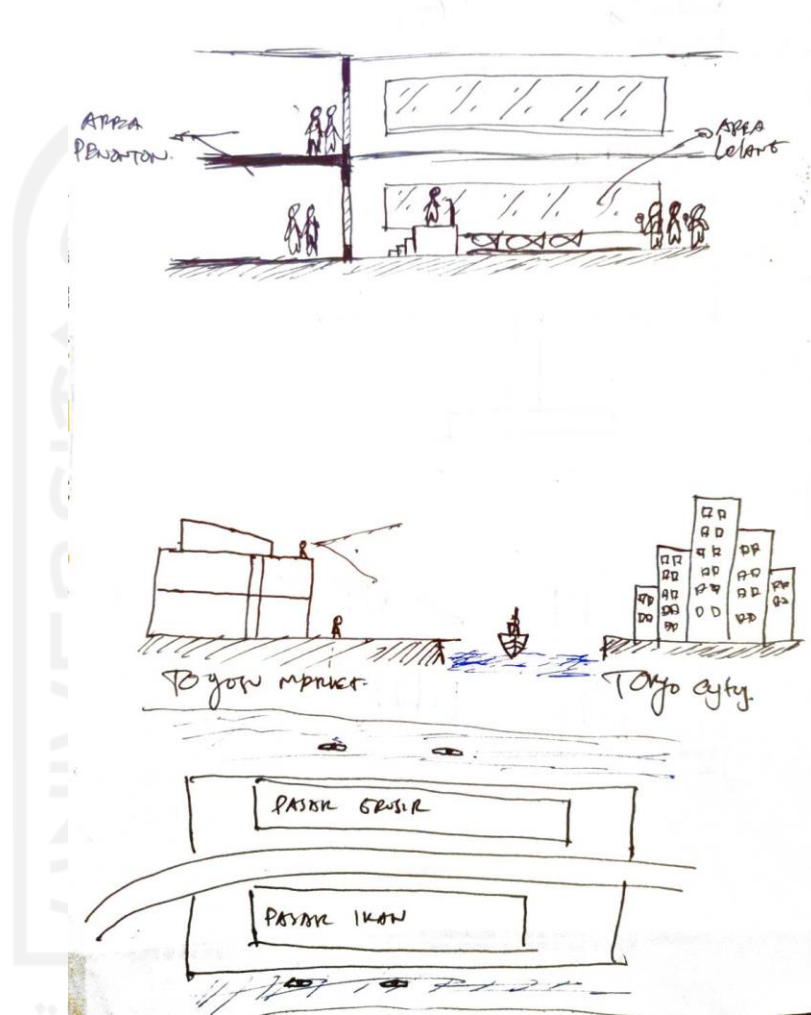 AREA
PENONTON.
AREA
LELANG
TOYOSU MARKET.
Tokyo City.
PASAR GROSIR
PASAR IKAN